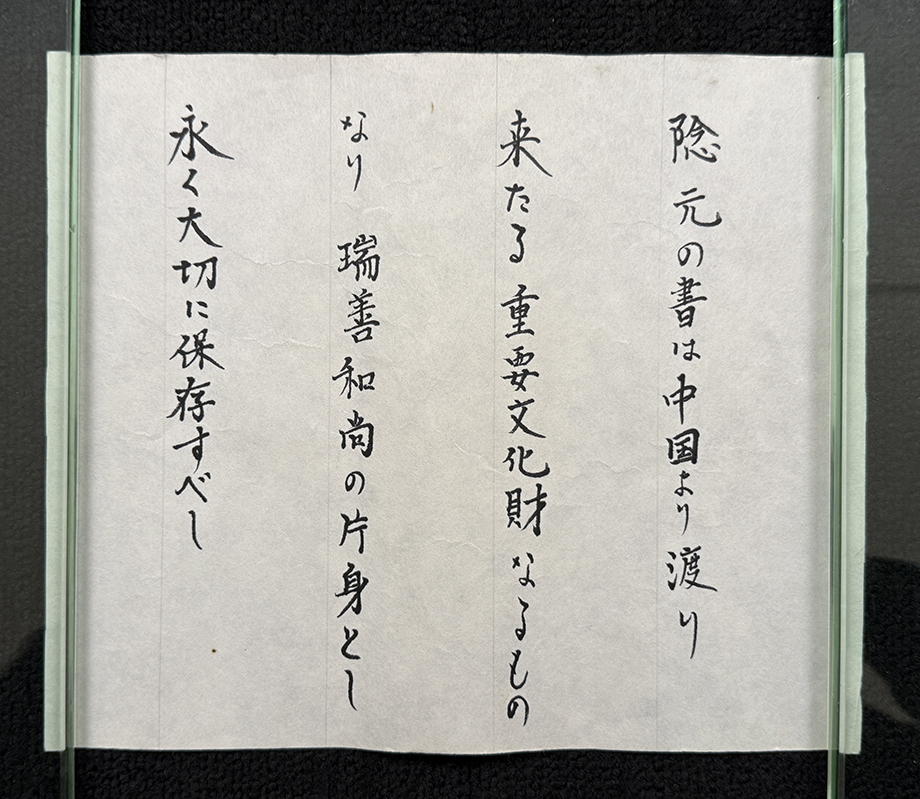 隠元の書は中国より渡り
来たる重要文化財なるもの
なり　瑞善和尚の片身とし
永く大切に保存すべし